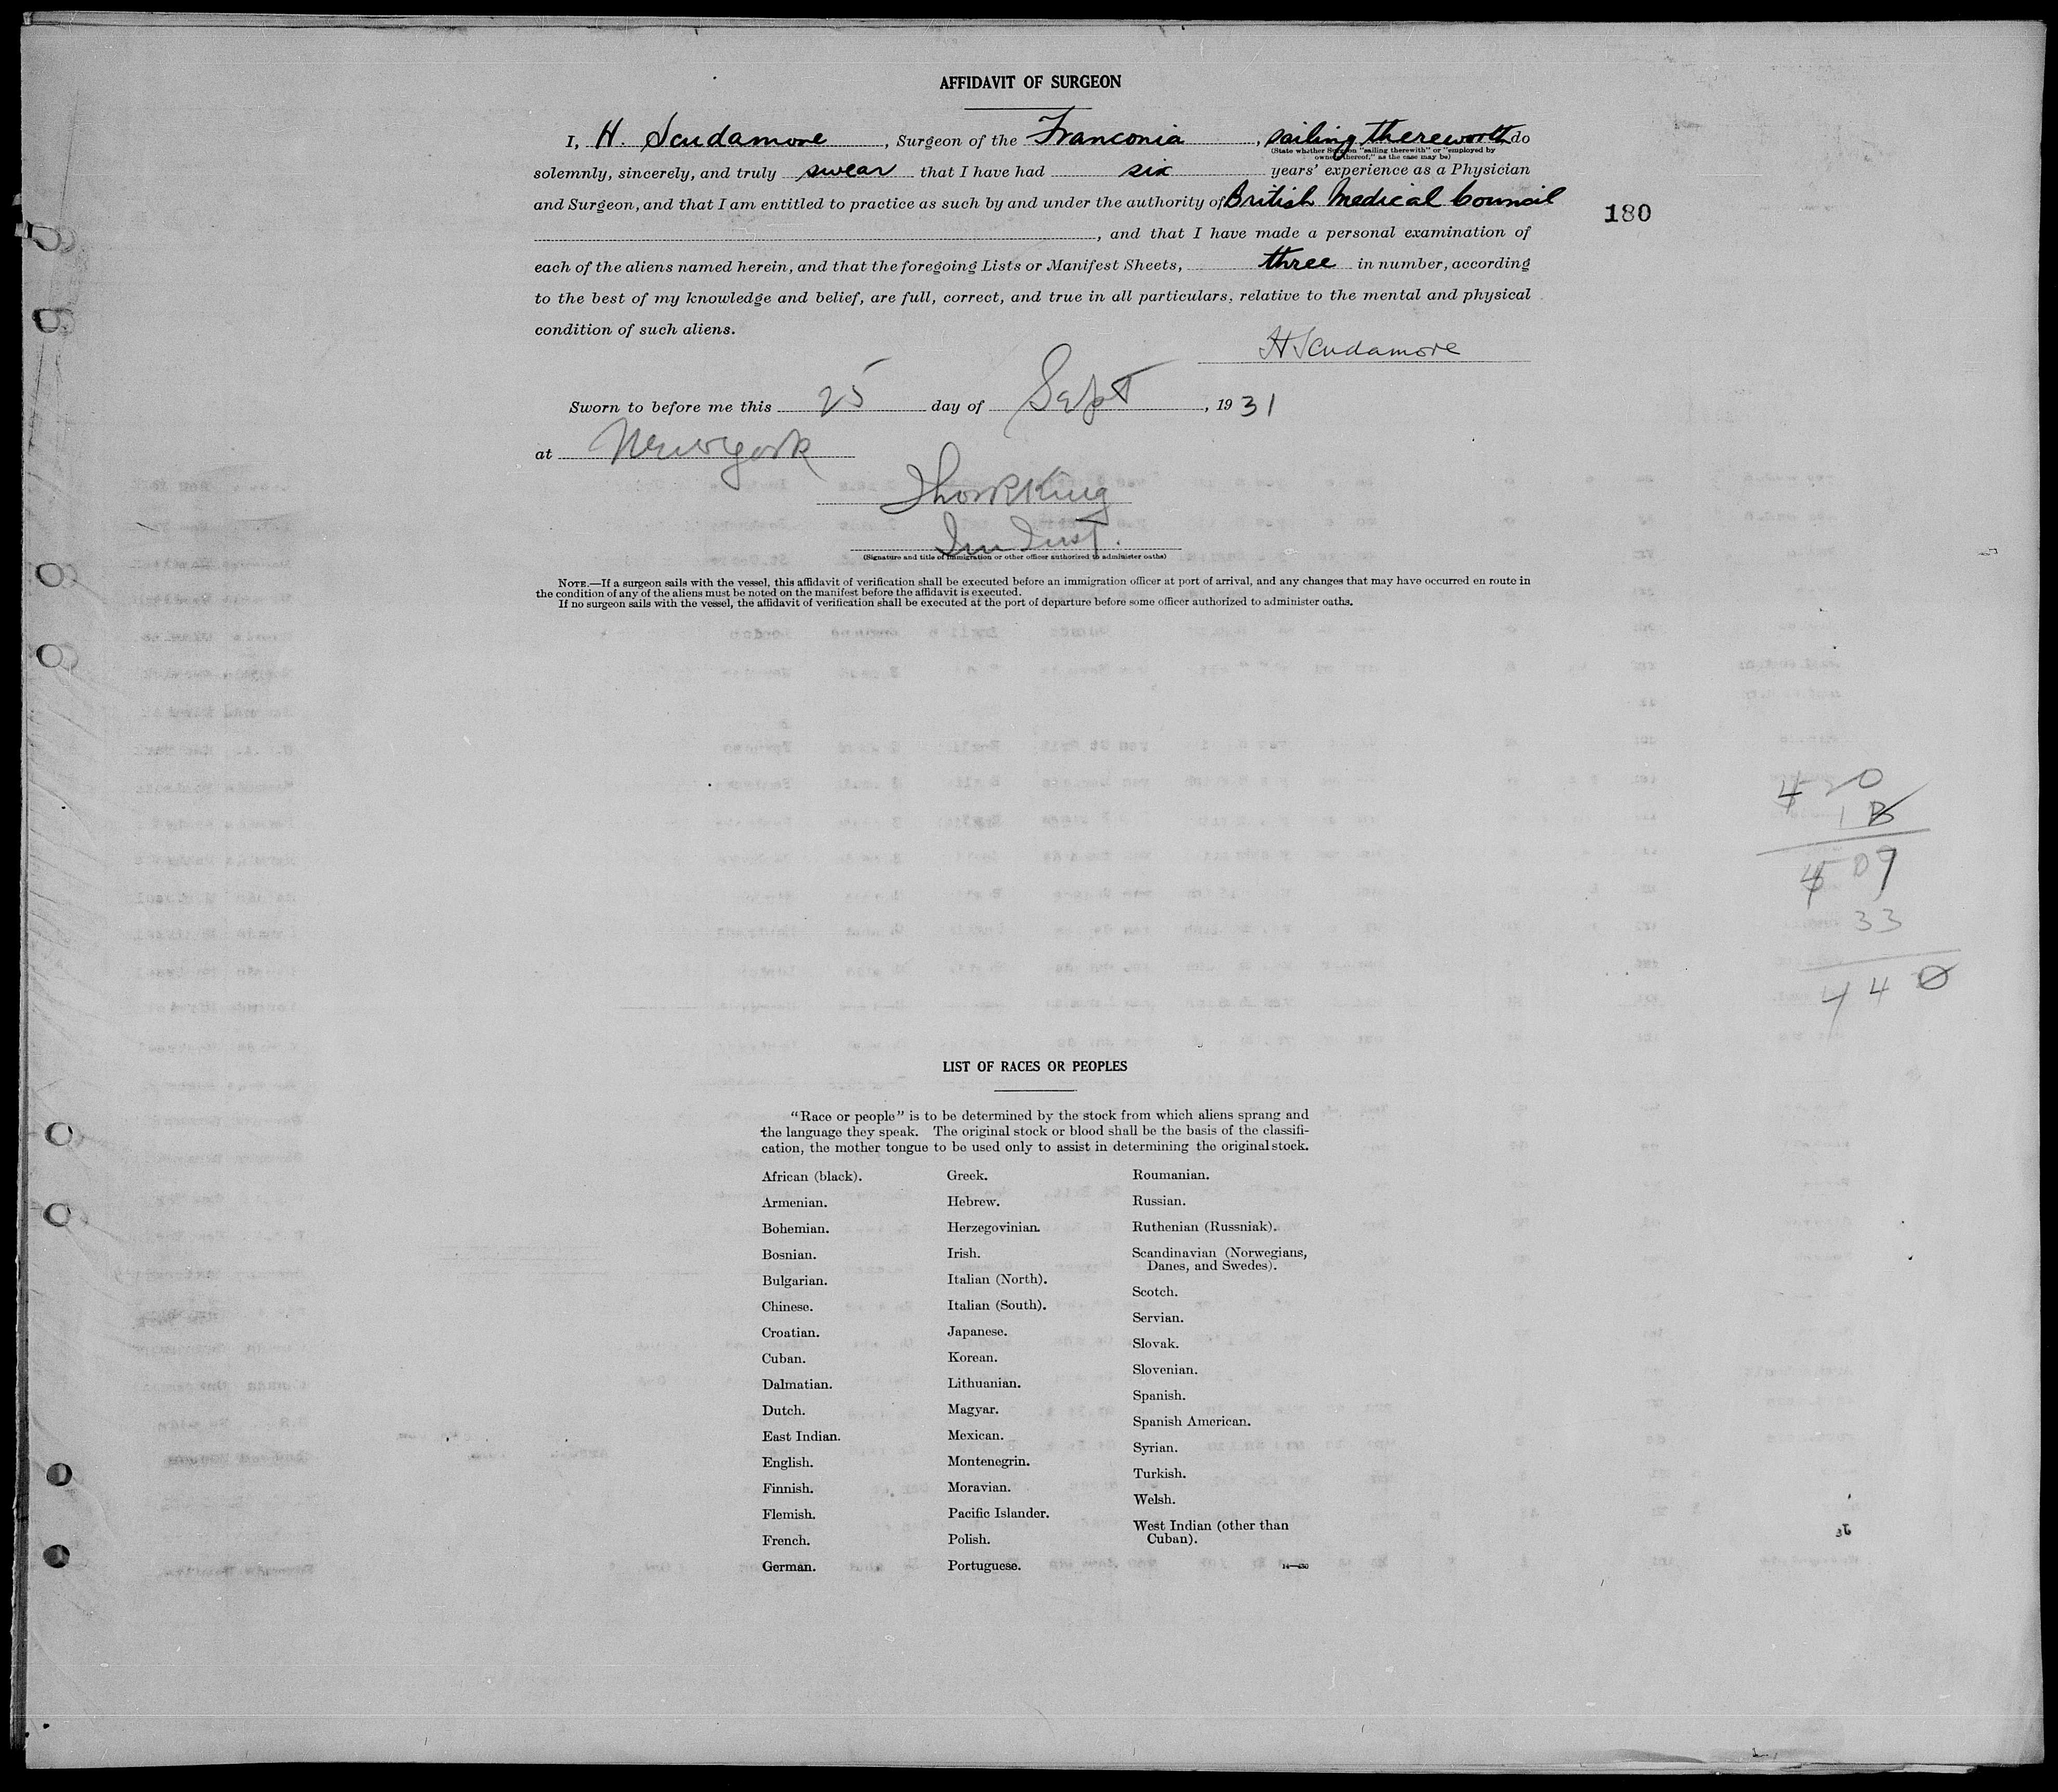 AFFIDAVIT OF SURGEON
I, H. Scudamore, Surgeon of the Franconia, sailing therewith do
(State whether Surgeon "sailing therewith" or "employed by
owners thereof," as the case may be)
solemnly, sincerely, and truly swear that I have had six years' experience as a Physician
and Surgeon, and that I am entitled to practice as such by and under the authority of British Medical Council
180
, and that I have made a personal examination of
each of the aliens named herein, and that the foregoing Lists or Manifest Sheets, three in number, according
to the best of my knowledge and belief, are full, correct, and true in all particulars, relative to the mental and physical
condition of such aliens.
H Scudamore
Sworn to before me this 25 day of Sept, 1931
at New York
King
Im Insp.
(Signature and title of immigration or other officer authorized to administer oaths)
NOTE.—If a surgeon sails with the vessel, this affidavit of verification shall be executed before an immigration officer at port of arrival, and any changes that may have occurred en route in
the condition of any of the aliens must be noted on the manifest before the affidavit is executed.
If no surgeon sails with the vessel, the affidavit of verification shall be executed at the port of departure before some officer authorized to administer oaths.
33
LIST OF RACES OR PEOPLES
"Race or people" is to be determined by the stock from which aliens sprang and
the language they speak. The original stock or blood shall be the basis of the classifi-
cation, the mother tongue to be used only to assist in determining the original stock.
African (black).
Armenian.
Bohemian.
Bosnian.
Bulgarian.
Chinese.
Croatian.
Cuban.
Dalmatian.
Dutch.
East Indian.
English.
Finnish.
Flemish.
French.
German.
Greek.
Hebrew.
Herzegovinian.
Irish.
Italian (North).
Italian (South).
Japanese.
Korean.
Lithuanian.
Magyar.
Mexican.
Montenegrin.
Moravian.
Pacific Islander.
Polish.
Portuguese.
Roumanian.
Russian.
Ruthenian (Russniak).
Scandinavian (Norwegians,
Danes, and Swedes).
Scotch.
Servian.
Slovak.
Slovenian.
Spanish.
Spanish American.
Syrian.
Turkish.
Welsh.
West Indian (other than
Cuban).